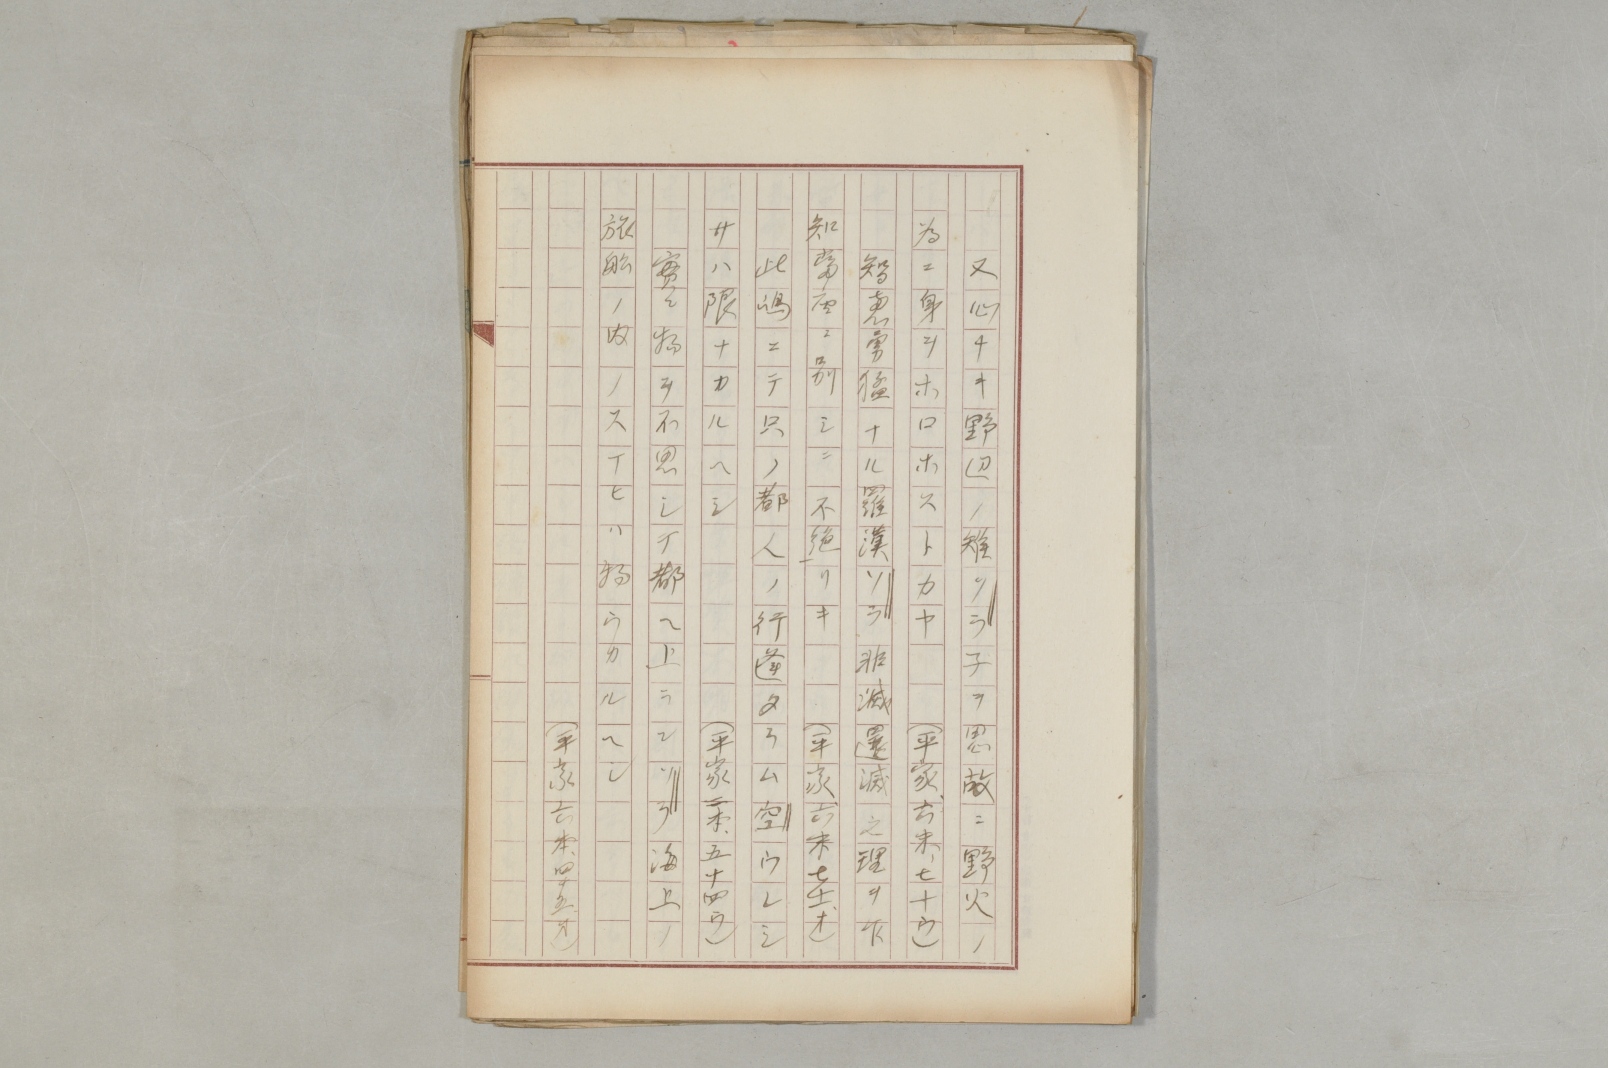 又心ナキ野辺ノ雉ソラ子ヲ思故ニ野火ノ
為ニ身ヲホロホストカヤ（平家、六末、七十ウ）
智恵勇猛ナル羅漢ソラ非滅還滅之理ヲ乍
知当座ニ別シニ不絶リキ（平家、六末七十オ）
此嶋ニテ只ノ都人ノ行逢タラム空ウレシ
サハ限ナカルヘシ（平家一末、五十四ウ）
実ニ物ヲ不思シテ都ヘ上ランソラ海上ノ
旅船ノ内ノスマヒハ物ウカルヘシ
（平家六本、四十五オ）